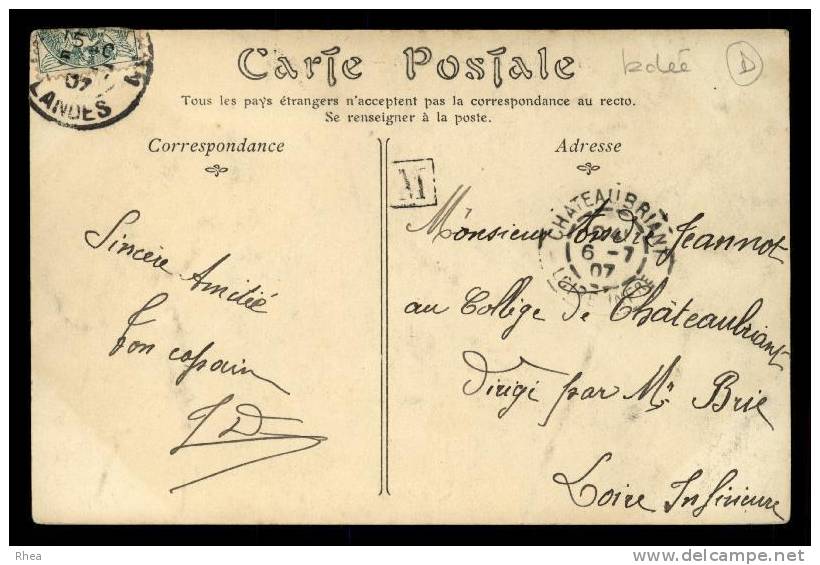 Carte Postale
Tous les pays étrangers n'acceptent pas la correspondance au recto.
Se renseigner à la poste.
Correspondance
Adresse
LANDES
07
M
CHATEAUBRIANT
6 -7
07
D
Sincère Amitié
Ton copain
JD
Monsieur André Jeannot
au Collège de Châteaubriant
Dirigé par Mr Brie
Loire Inférieure
Rhea
www.delcampe.net